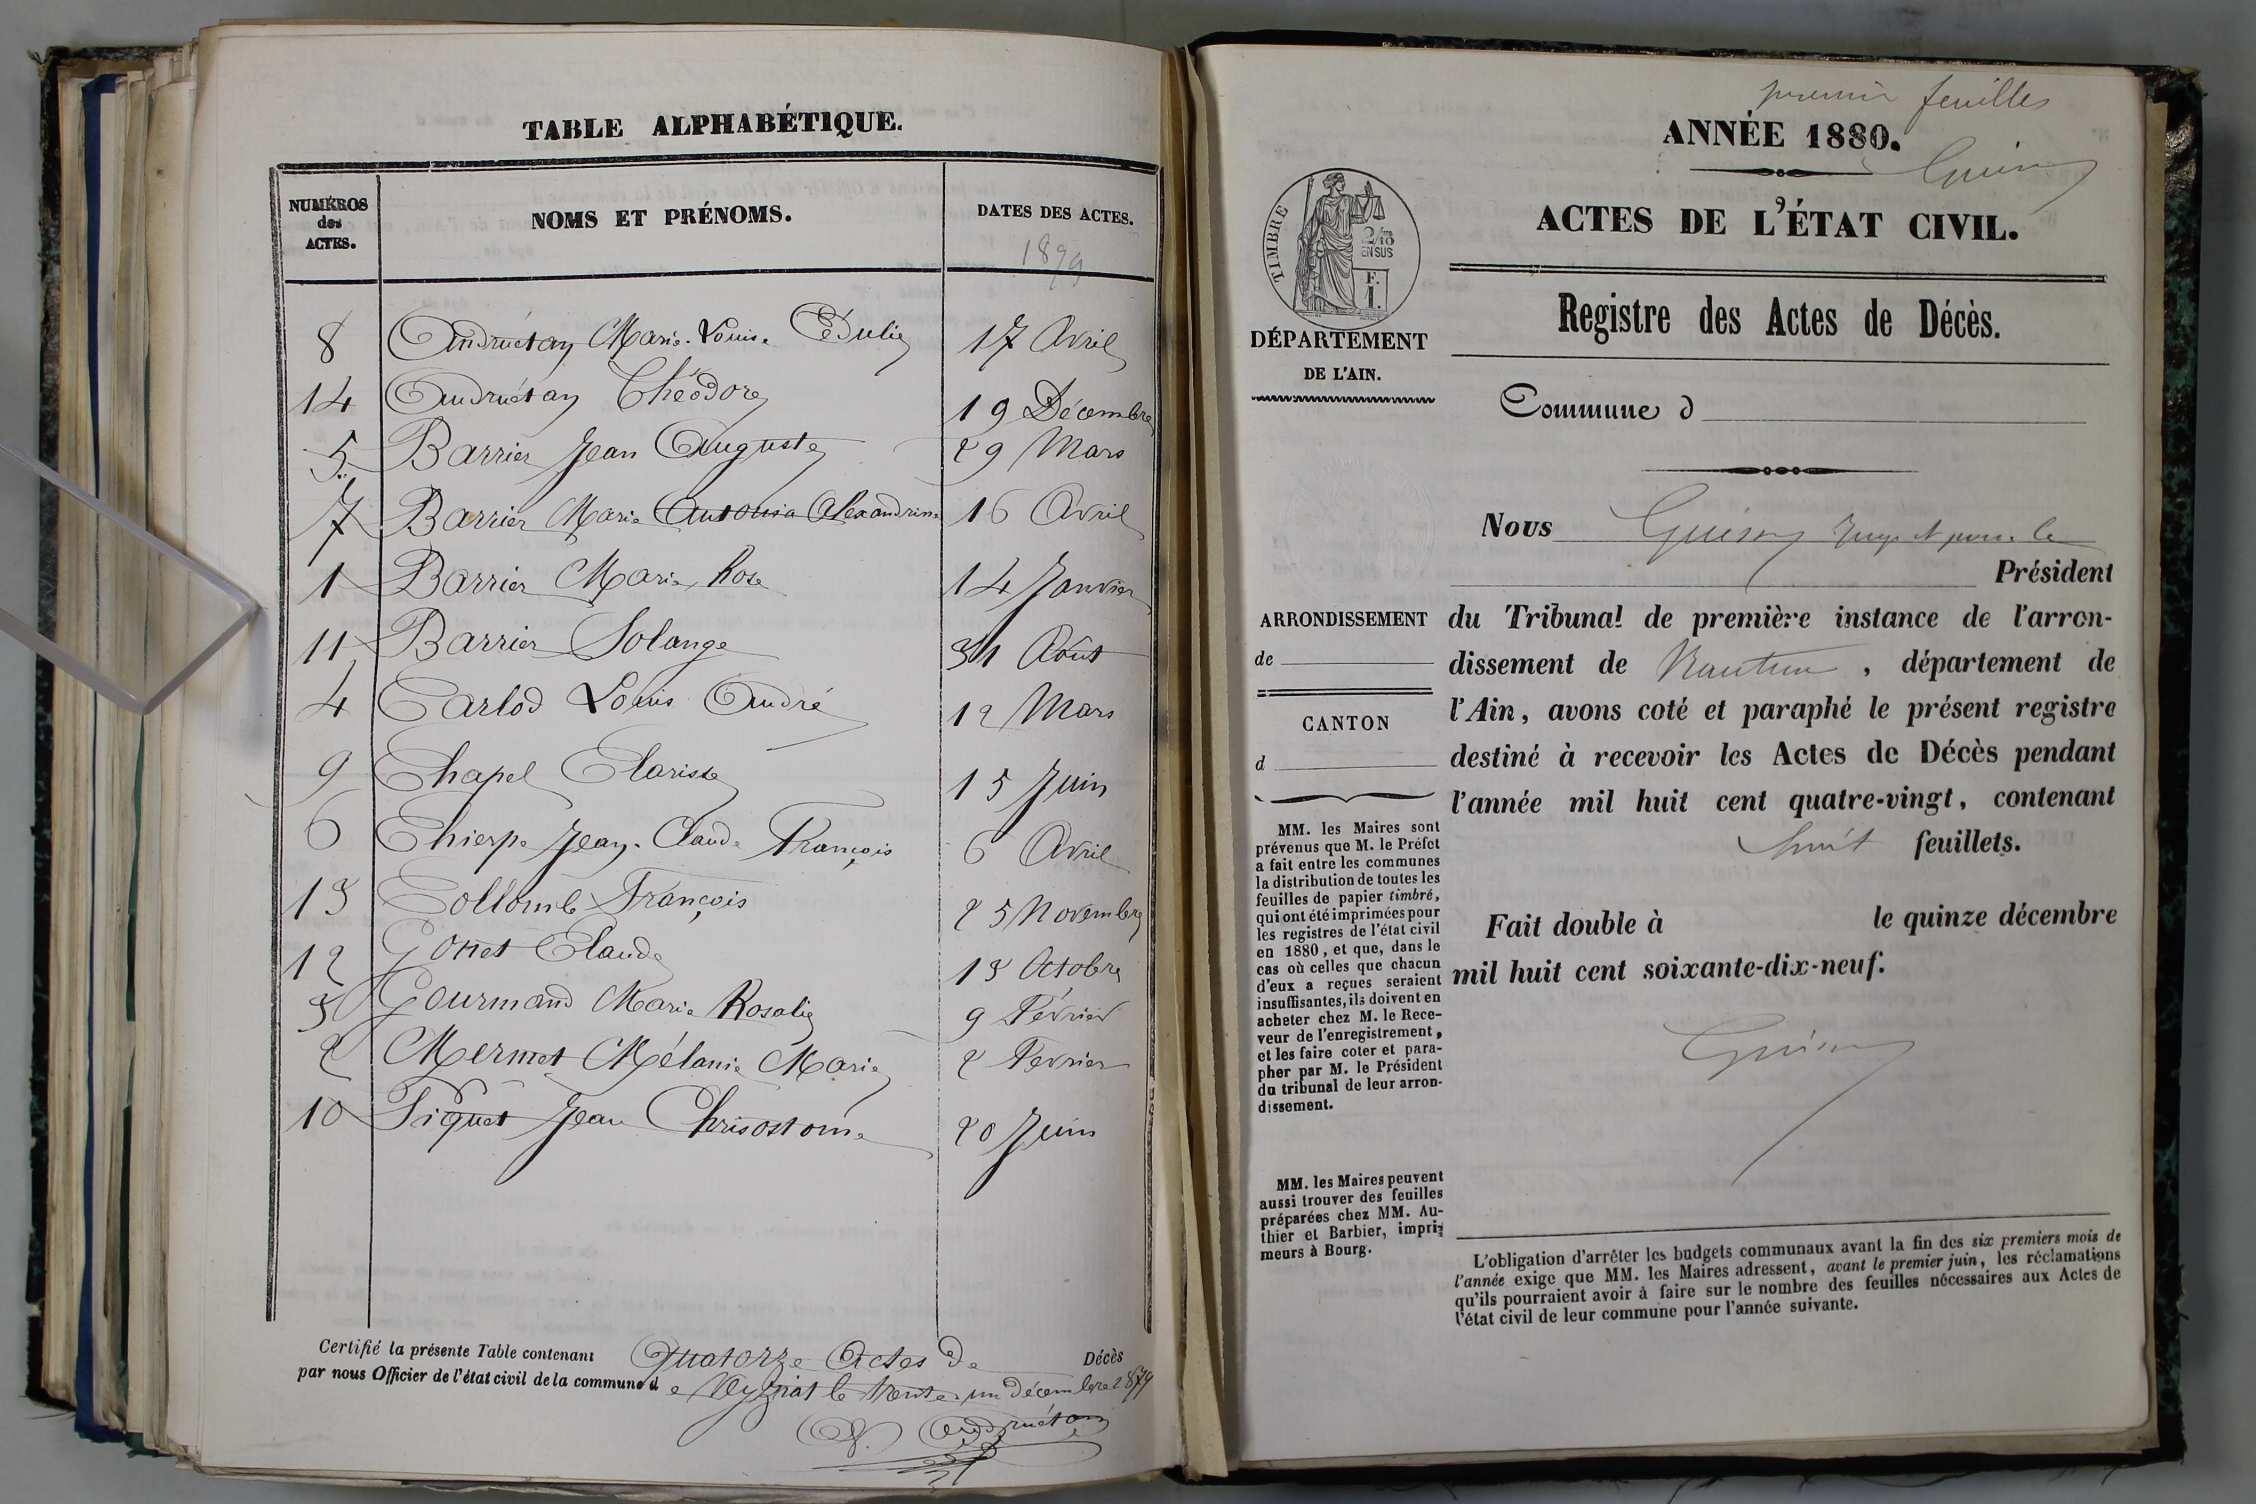 TABLE ALPHABÉTIQUE.
NUMÉROS des ACTES.
NOMS ET PRÉNOMS.
DATES DES ACTES.
1879
8 Andruétan Marie-Louise Cédulie 17 Avril
14 Andruétan Théodore 19 Décembre
5 Barrier Jean Auguste 29 Mars
7 Barrier Marie Antonia Alexandrine 16 Avril
1 Barrier Marie Rose 14 Janvier
11 Barrier Solange 31 Août
4 Carlod Louis André 12 Mars
9 Chapel Clarisse 15 Juin
6 Chierpe Jean-Claude François 6 Avril
13 Collomb François 25 Novembre
12 Gottet Claude 13 Octobre
3 Gourmand Marie Rosalie 9 Février
2 Mermet Mélanie Marie 2 Fevrier
10 Piquet Jean Chrisostome 20 Juin
Certifié la présente Table contenant Quatorze Actes de Décès
par nous Officier de l'état civil de la commune d e Veyziat le trente-un décembre 1879
Andruétan
premier feuilles
ANNÉE 1880.
ACTES DE L'ÉTAT CIVIL.
TIMBRE
2/10
EN SUS
F.
1.
DÉPARTEMENT
DE L'AIN.
Registre des Actes de Décès.
Commune d
Nous
Président
ARRONDISSEMENT
de
CANTON
d
du Tribunal de première instance de l'arron-
dissement de Nantua, département de
l'Ain, avons coté et paraphé le présent registre
destiné à recevoir les Actes de Décès pendant
l'année mil huit cent quatre-vingt, contenant
huit feuillets.
Fait double à le quinze décembre
mil huit cent soixante-dix-neuf.
MM. les Maires sont
prévenus que M. le Préfet
a fait entre les communes
la distribution de toutes les
feuilles de papier timbré,
qui ont été imprimées pour
les registres de l'état civil
en 1880, et que, dans le
cas où celles que chacun
d'eux a reçues seraient
insuffisantes, ils doivent en
acheter chez M. le Rece-
veur de l'enregistrement,
et les faire coter et para-
pher par M. le Président
du tribunal de leur arron-
dissement.
MM. les Maires peuvent
aussi trouver des feuilles
préparées chez MM. Au-
thier et Barbier, impri-
meurs à Bourg.
L'obligation d'arrêter les budgets communaux avant la fin des six premiers mois de
l'année exige que MM. les Maires adressent, avant le premier juin, les réclamations
qu'ils pourraient avoir à faire sur le nombre des feuilles nécessaires aux Actes de
l'état civil de leur commune pour l'année suivante.